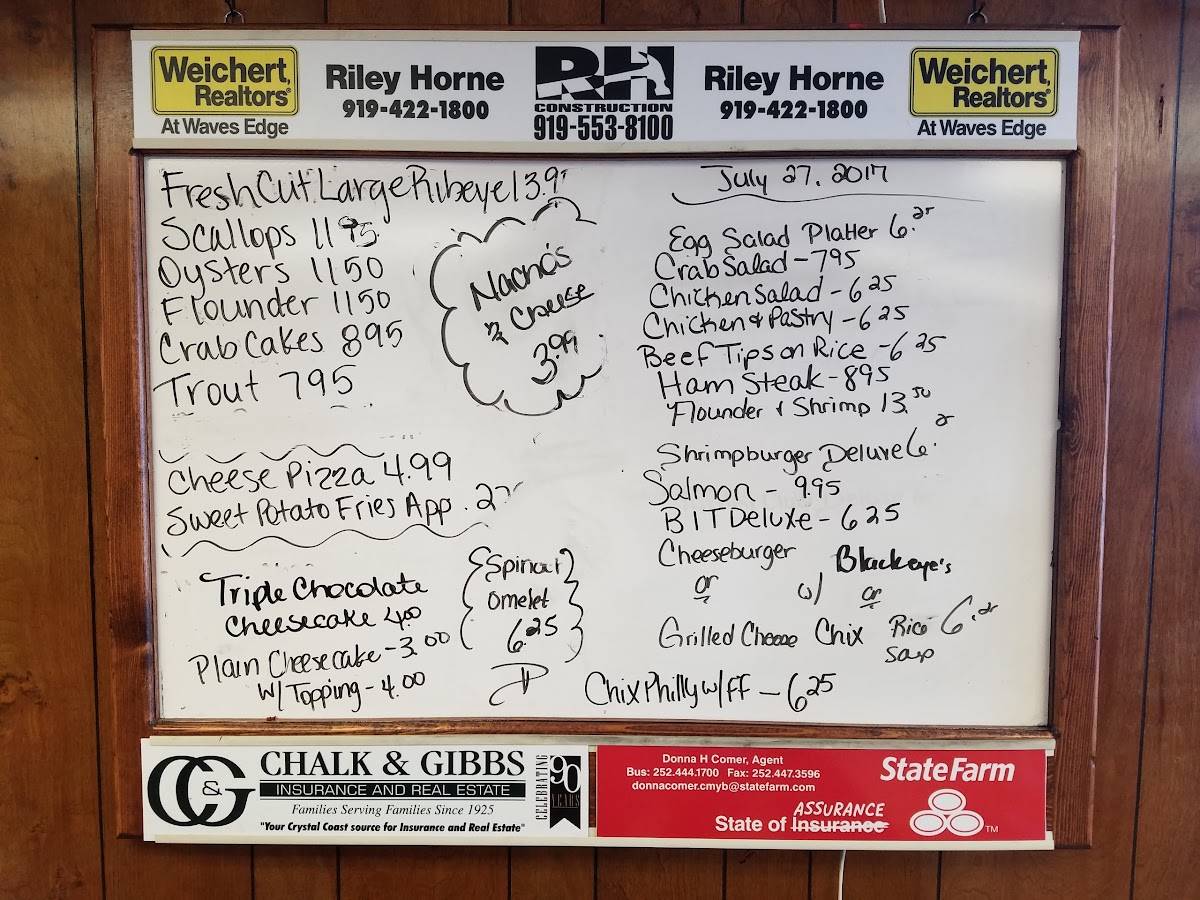 Weichert,
Realtors®
At Waves Edge
Riley Horne
919-422-1800
RH
CONSTRUCTION
919-553-8100
Riley Horne
919-422-1800
Weichert,
Realtors®
At Waves Edge
Fresh Cut Large Ribeye 13.9
Scallops 1195
Oysters 1150
Flounder 1150
Crab Cakes 895
Trout 795
Nacho's
& Cheese
3.99
Cheese Pizza 4.99
Sweet Potato Fries App. 2
Triple Chocolate
Cheesecake 4.00
Plain Cheesecake - 3.00
w/ Topping - 4.00
Omelet
6.25
July 27, 2017
Egg Salad Platter 6.25
Crab Salad - 795
Chicken Salad - 625
Chicken & Pastry - 625
Beef Tips on Rice - 625
Ham Steak - 895
Flounder & Shrimp 13.50
Shrimpburger Deluxe 6.
Salmon - 9.95
BLT Deluxe - 625
Cheeseburger
or
Grilled Cheese
w/
Blackeye's
or
Chix Rice 6.25
Soup
Chix Philly w/ FF - 625
C&G
CHALK & GIBBS
INSURANCE AND REAL ESTATE
Families Serving Families Since 1925
"Your Crystal Coast source for Insurance and Real Estate"
CELEBRATING
90
YEARS
Donna H Comer, Agent
Bus: 252.444.1700 Fax: 252.447.3596
donnacomer.cmyb@statefarm.com
StateFarm
ASSURANCE
State of Insurance
TM